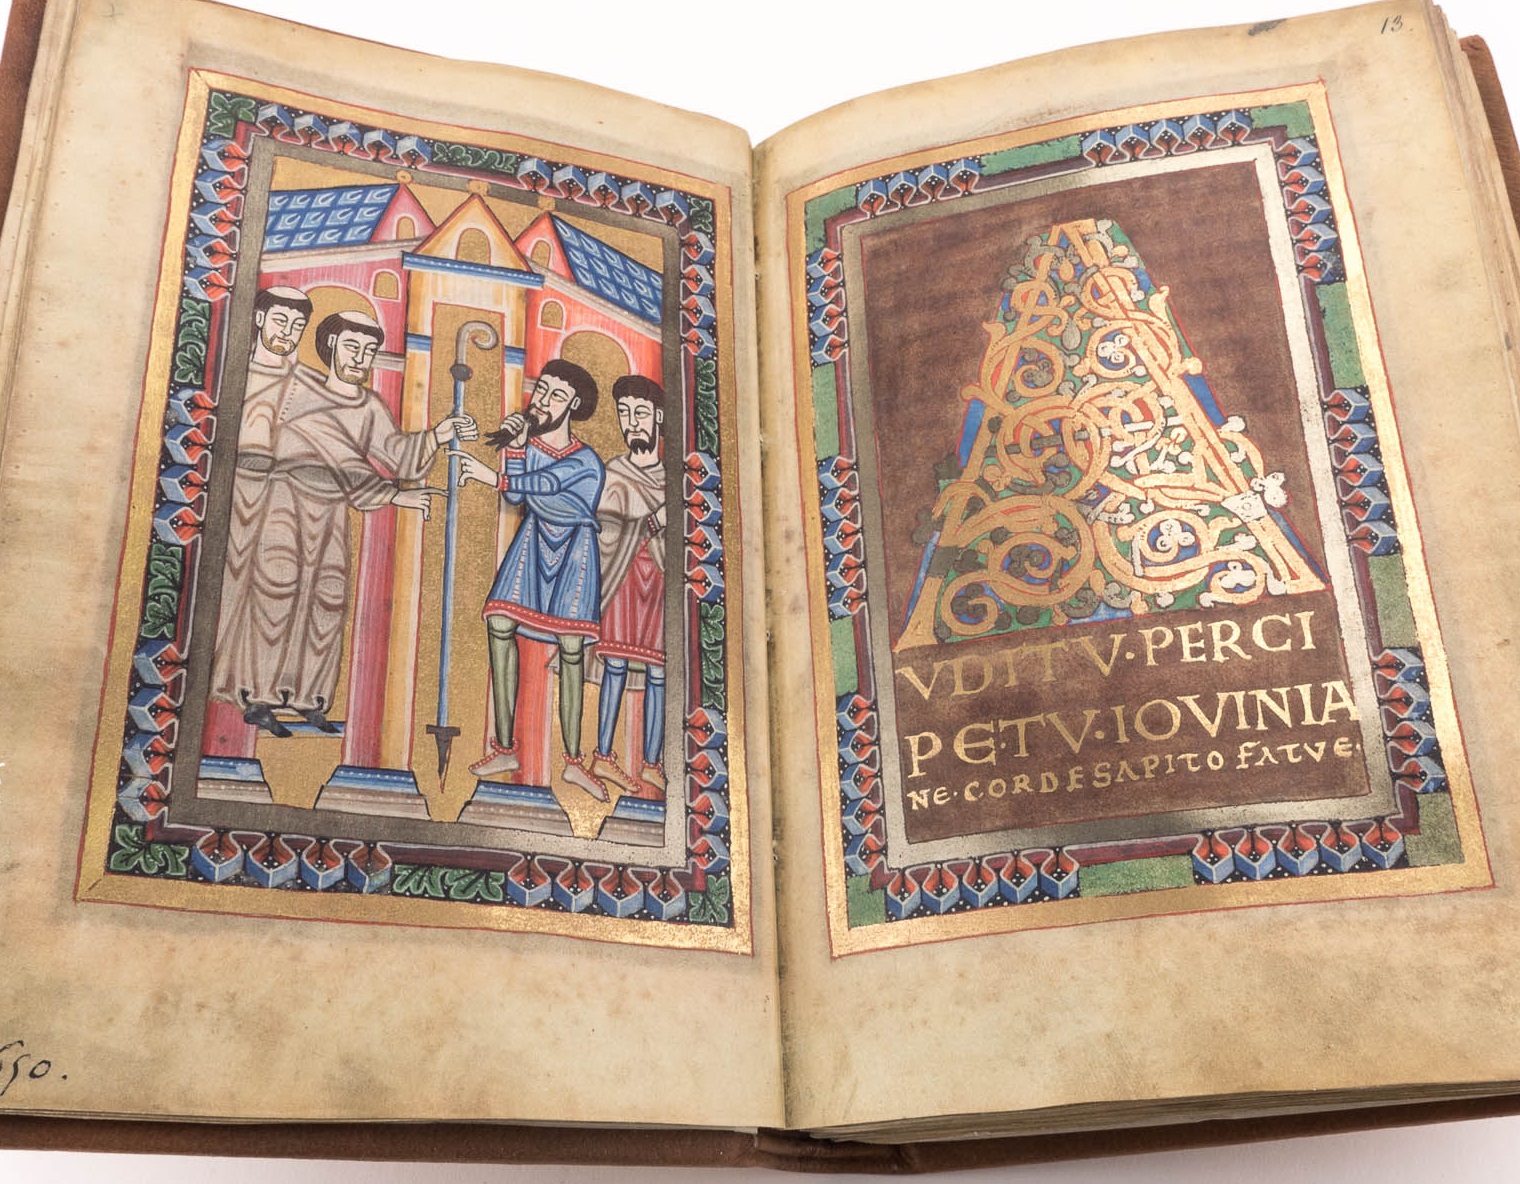 13.
650.
A
VDITV·PERCI
PE·TV·IOVINIA
NE·CORDESAPITO FATVE·